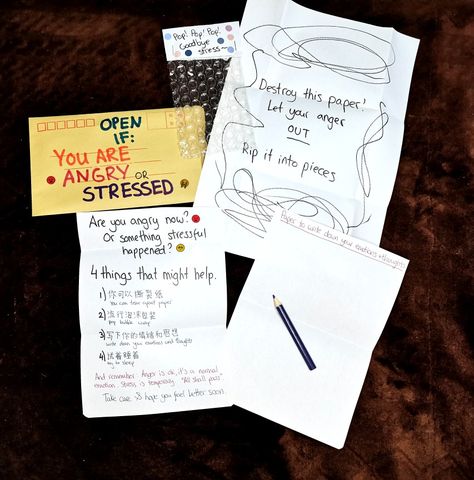 Pop! Pop! Pop!
Goodbye
stress~
OPEN
IF:
YOU ARE
ANGRY OR
STRESSED
Destroy this paper!
Let your anger
OUT
Rip it into pieces
Are you angry now?
Or something stressful
happened?
4 things that might help.
1) 你可以撕裂紙
You can tear apart paper
2) 流行泡沫包装
pop bubble wrap
3) 写下你的情緒和思想
write down your emotions and thoughts
4) 試着睡着
try to sleep
And remember: Anger is ok, it's a normal
emotion. Stress is temporary. "All shall pass".
Take care & hope you feel better soon.
Paper to write down your emotions + thoughts